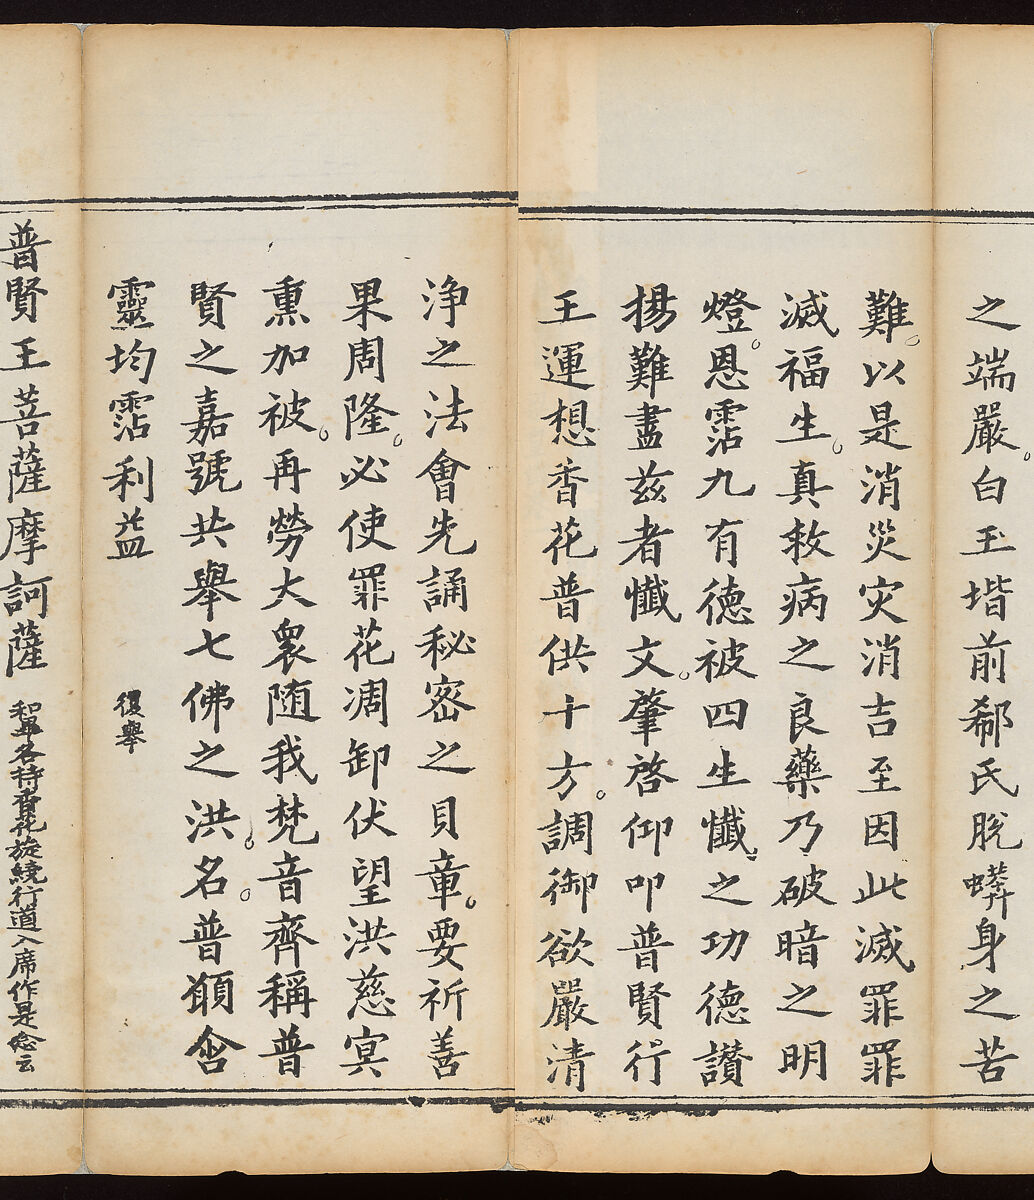 之端嚴。白玉堦前郗氏脫蟒身之苦
難。以是消災灾消吉至因此滅罪罪
滅福生。真救病之良藥乃破暗之明
燈。恩霑九有德被四生懺。之功德讃
揚難盡兹者懺文。肇啓仰叩普賢行
王運想香花普供十方。調御欲嚴清
淨之法會先誦秘密之貝章。要祈善
果周隆。必使罪花凋卸伏望洪慈冥
熏加被。再勞大衆随我梵音齊稱普
賢之嘉號共舉七佛之洪。名。普願含
靈均霑利益 復舉
普賢王菩薩摩訶薩 和畢各持香花旋繞行道入席作是念云